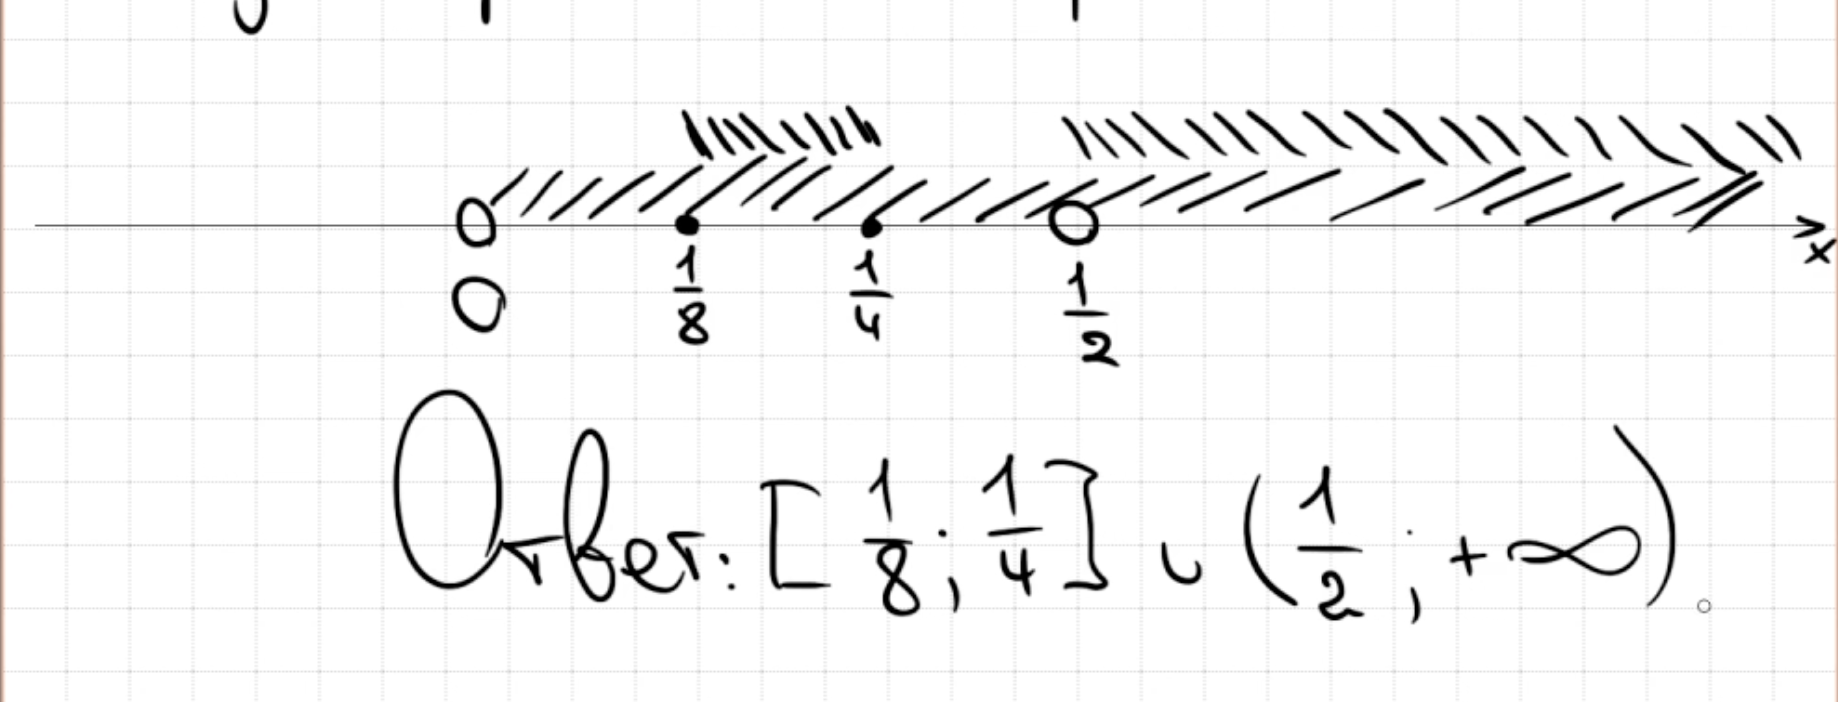 x
0 1/8 1/4 1/2
Ответ: [1/8; 1/4] ∪ (1/2; +∞).